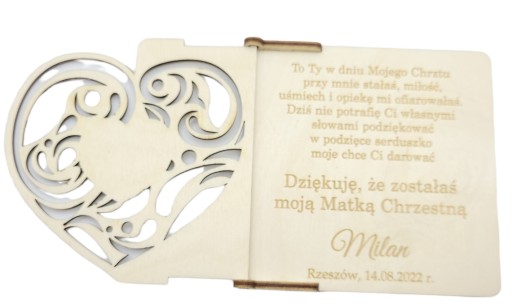 To Ty w dniu Mojego Chrztu
przy mnie stałaś, miłość,
uśmiech i opiekę mi ofiarowałaś.
Dziś nie potrafię Ci własnymi
słowami podziękować
w podzięce serduszko
moje chcę Ci darować
Dziękuję, że zostałaś
moją Matką Chrzestną
Milan
Rzeszów, 14.08.2022 r.